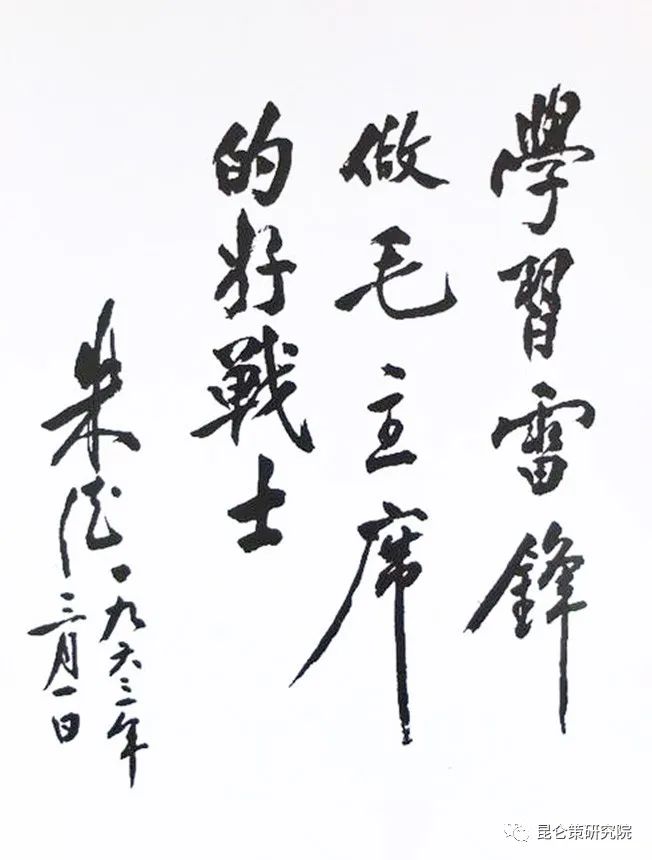 學習雷鋒
做毛主席
的好戰士
朱德
一九六三年
三月一日
昆仑策研究院